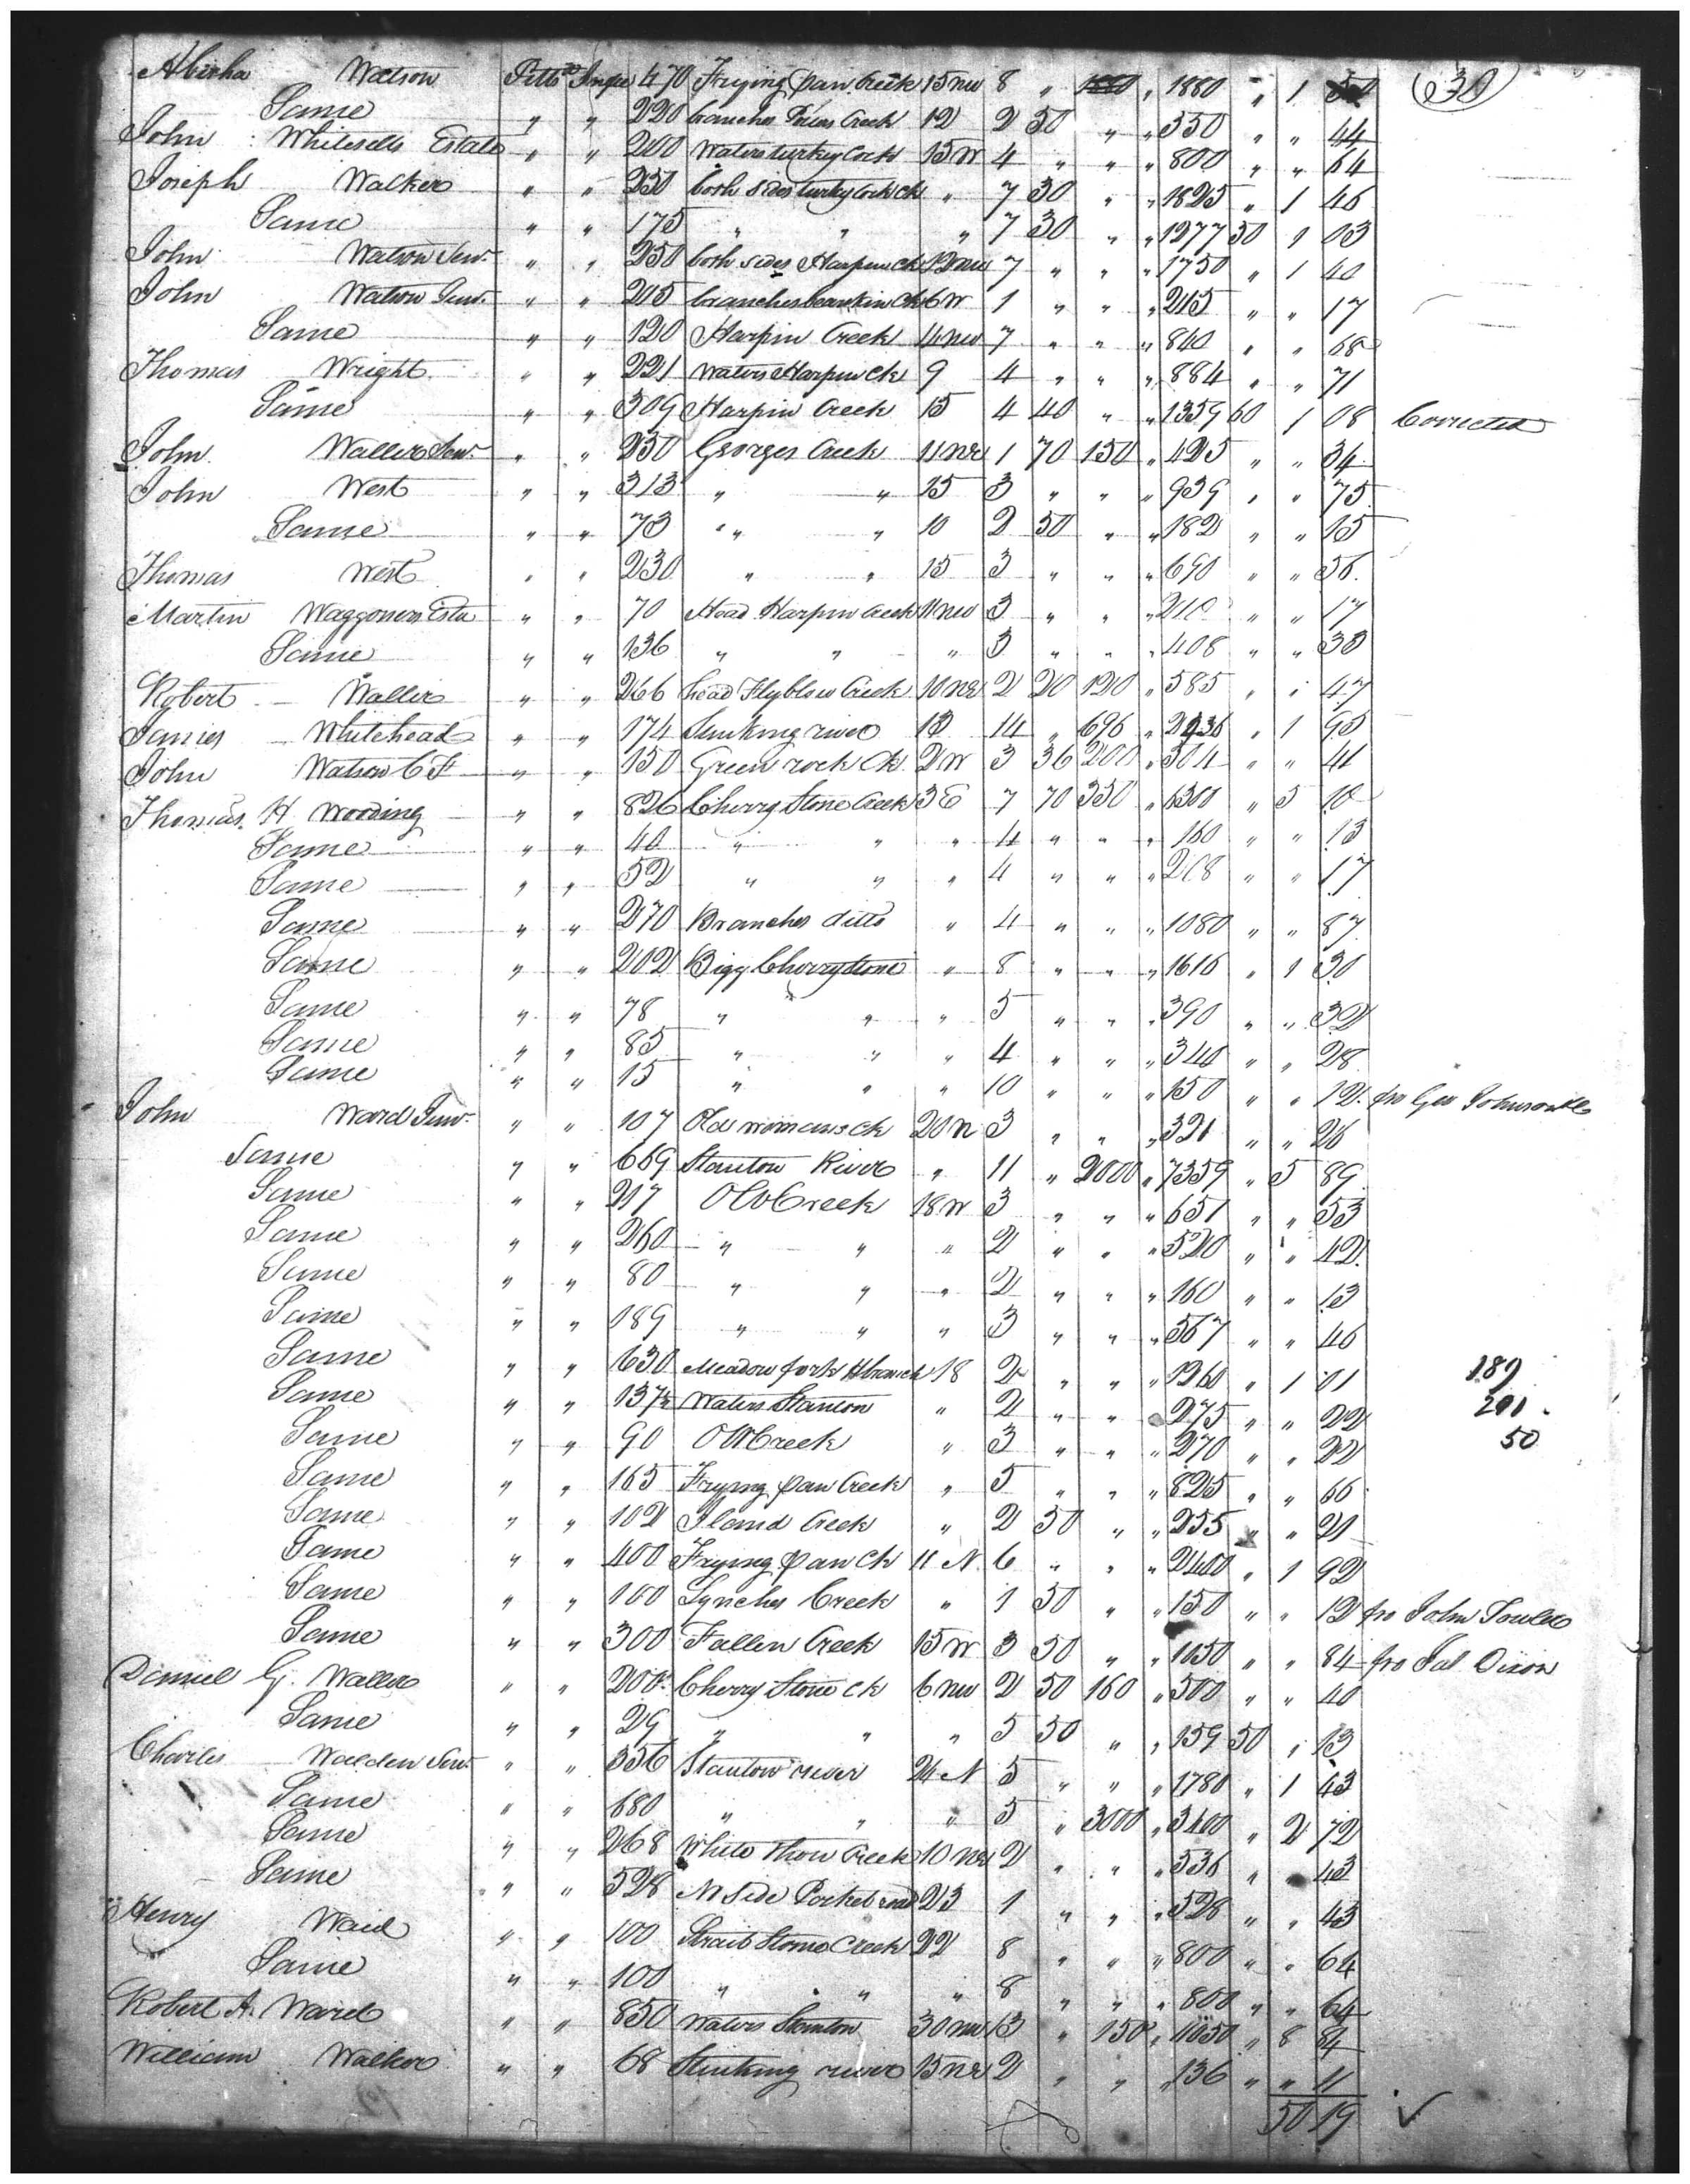 Abisha Watson Pitts Simple 470 Frying pan Creek 15 nw 8 " 1880 " 1880 " 1 50 (30)
Same " " 220 branches Creek 12 2 50 " " 550 " " 44
John Whitesells Estate " " 200 Waters turkey Cock 15 W 4 " " " 800 " " 64
Joseph Walker " " 250 both sides turkey Cock Ck " 7 30 " " 1825 " 1 46
Same " " 175 " " " 7 30 " " 1277 50 1 03
John Watson Senr. " " 250 both sides Harpin Ck 12 nw 7 " " " 1750 " 1 40
John Watson Junr. " " 215 branches bearskin Ck 6 W 1 " " " 215 " " 17
Same " " 120 Harpin Creek 14 nw 7 " " " 840 " " 68
Thomas Wright " " 221 Waters Harpin Ck 9 4 " " " 884 " " 71
Same " " 309 Harpin Creek 15 4 40 " " 1359 60 1 08 Corrected
John Waller Senr. " " 250 Georges Creek 11 NE 1 70 150 " 425 " " 34
John West " " 313 " " 15 3 " " " 939 " " 75
Same " " 73 " " 10 2 50 " " 182 " " 15
Thomas West " " 230 " " 15 3 " " " 690 " " 56
Martin Waggoners Esta " " 70 Head Harpin Creek 11 nw 3 " " " 210 " " 17
Same " " 136 " " " 3 " " " 408 " " 33
Robert Waller " " 266 head Flyblow Creek 10 NE 2 20 120 " 585 " " 47
James Whitehead " " 174 Stinking river 12 14 " 696 " 2436 " 1 95
John Watson C F " " 150 Green rock Ck 2 W 3 36 200 " 504 " " 41
Thomas H Wooding " " 826 Cherry Stone Creek 3 E 7 70 350 " 6300 " 5 10
Same " " 40 " " " 4 " " " 160 " " 13
Same " " 52 " " " 4 " " " 208 " " 17
Same " " 270 Branches ditto " 4 " " " 1080 " " 87
Same " " 202 Bigg Cherrystone " 8 " " " 1616 " 1 30
Same " " 78 " " " 5 " " " 390 " " 32
Same " " 85 " " " 4 " " " 340 " " 28
Same " " 15 " " " 10 " " " 150 " " 12 fro Geo Johnson
John Ward Junr. " " 107 Old womans Ck 20 N 3 " " " 321 " " 26
Same " " 669 Stanton River " 11 " 2000 " 7359 " 5 89
Same " " 217 O W Creek 18 W 3 " " " 651 " " 53
Same " " 260 " " " 2 " " " 520 " " 42
Same " " 80 " " " 2 " " " 160 " " 13
Same " " 189 " " " 3 " " " 567 " " 46
Same " " 630 Meadow fork 18 2 " " " 1260 " 1 01 189
Same " " 137½ Waters Stanton " 2 " " " 275 " " 22 291
Same " " 90 O W Creek " 3 " " " 270 " " 22 50
Same " " 165 Frying pan Creek " 5 " " " 825 " " 66
Same " " 102 Iland Creek " 2 50 " " 255 " " 21
Same " " 400 Frying pan Ck 11 N 6 " " " 2400 " 1 92
Same " " 100 Lynches Creek " 1 50 " " 150 " " 12 fro John
Same " " 300 Fallen Creek 15 W 3 50 " " 1050 " " 84 fro Dixon
Daniel G. Waller " " 200 Cherry Stone Ck 6 nw 2 50 160 " 500 " " 40
Same " " 29 " " " 5 50 " " 159 50 " 13
Charles Walden Senr. " " 356 Stanton river 24 N 5 " " " 1780 " 1 43
Same " " 680 " " " 5 " 3000 " 3400 " 2 72
Same " " 268 White thorn Creek 10 NE 2 " " " 536 " " 43
Same " " 528 N side road 23 1 " " " 528 " " 43
Henry Waid " " 100 Strait Stone Creek 22 8 " " " 800 " " 64
Same " " 100 " " " 8 " " " 800 " " 64
Robert A. Ward " " 850 Waters Stanton 30 nw 13 " 150 " 11050 " 8 84
William Walker " " 68 Stinking river 15 NE 2 " " " 136 " " 11
50 19 ✓